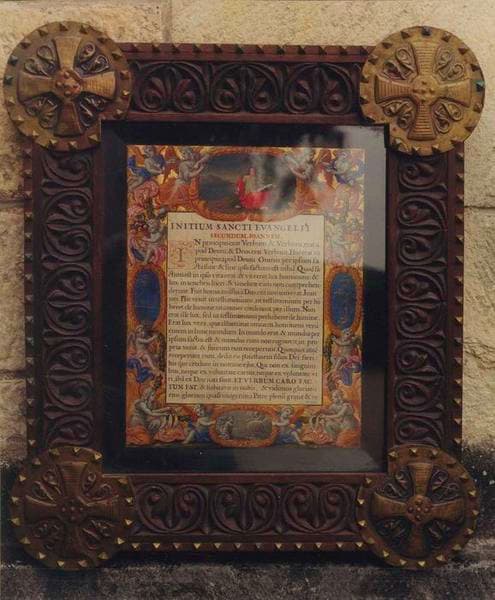 INITIUM SANCTI EVANGELII
SECUNDUM IOANNEM.
IN principio erat Verbum: & Verbum erat a
pud Deum: & Deus erat Verbum. Hoc erat in
principio apud Deum. Omnia per ipsum fa
cta sunt: & sine ipso factum est nihil. Quod fa
ctum est in ipso vita erat: & vita erat lux hominum: &
lux in tenebris lucet: & tenebræ eam non comprehen
derunt. Fuit homo missus a Deo cui nomen erat Ioan
nes. Hic venit in testimonium, ut testimonium per hi
beret de lumine: ut omnes crederent per illum. Non
erat ille lux, sed ut testimonium perhiberet de lumine.
Erat lux vera, quæ illuminat omnem hominem veni
entem in hunc mundum. In mundo erat: & mundus per
ipsum factus est: & mundus eum non cognovit. in pro
pria venit: & sui eum non receperunt. Quotquot autem
receperunt eum, dedit eis potestatem filios Dei fieri:
his qui credunt in nomine ejus. Qui non ex sanguini
bus, neque ex voluntate carnis, neque ex voluntate vi
ri, sed ex Deo nati sunt. ET VERBUM CARO FAC
TUM EST. & habitavit in nobis, & vidimus gloriam
ejus: gloriam quasi unigeniti a Patre plenum gratiæ & ve